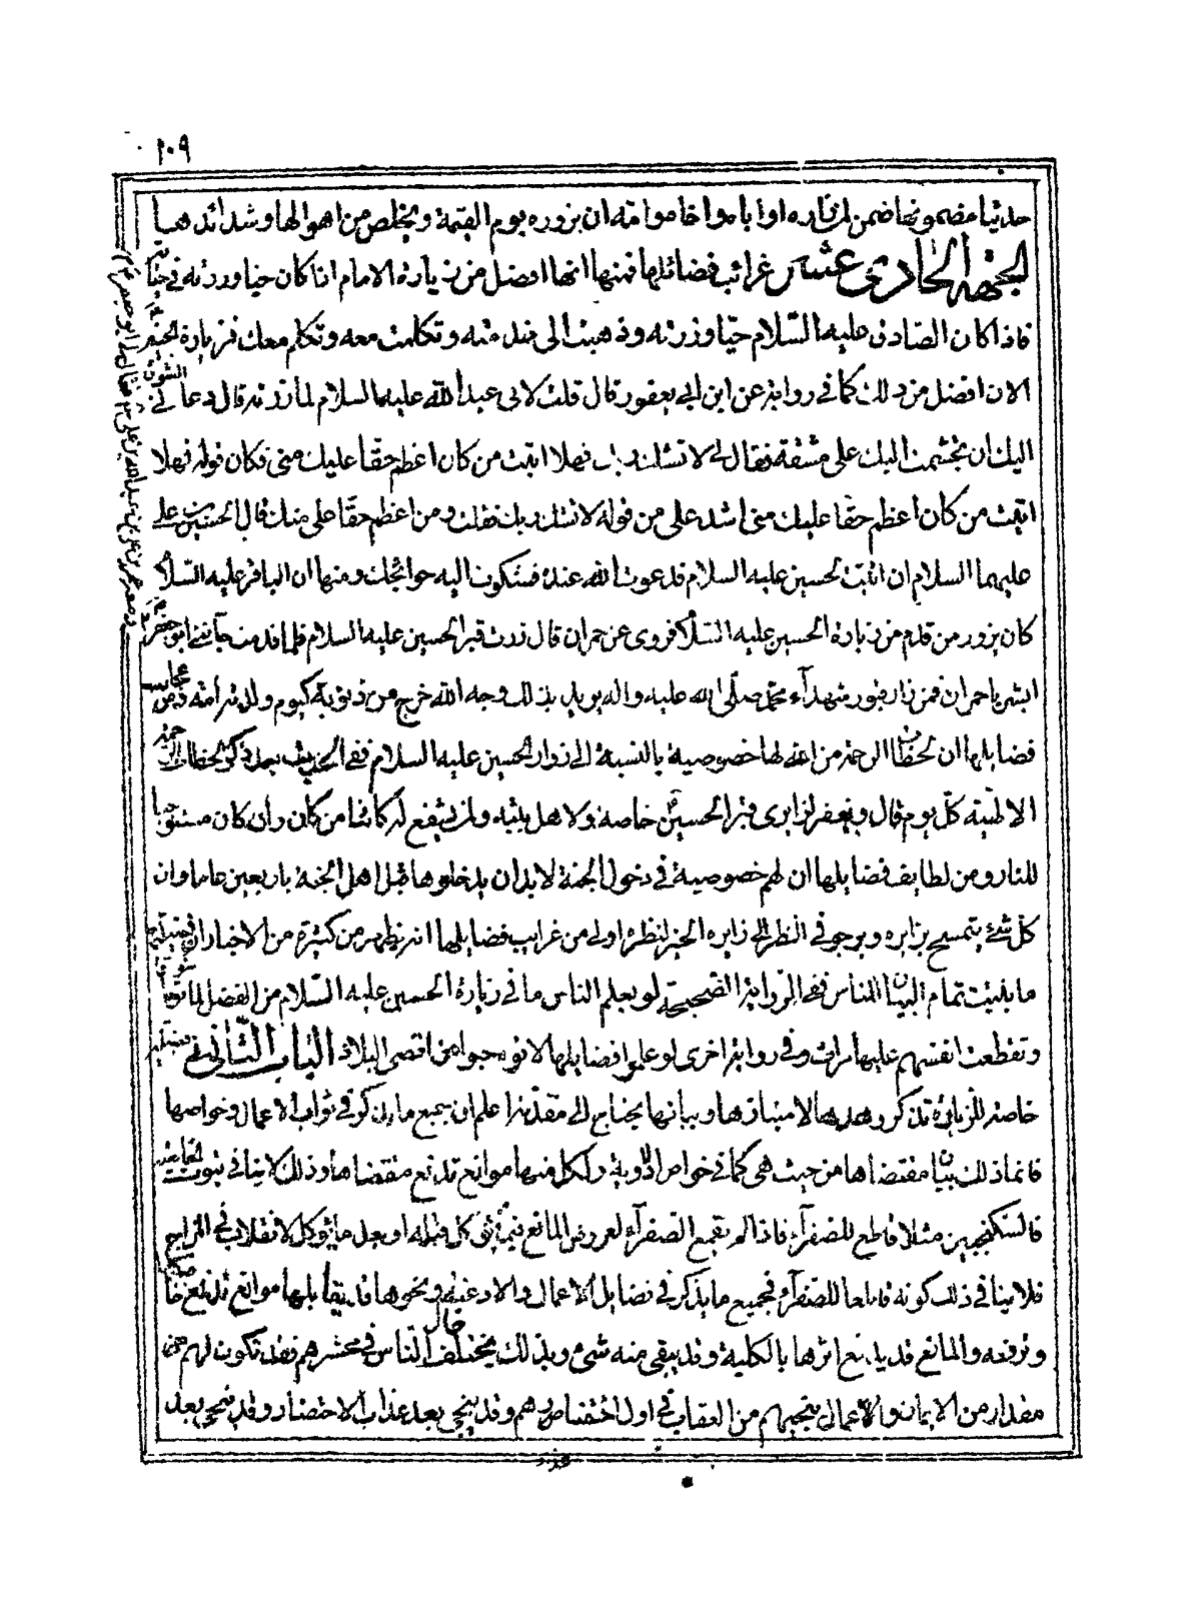 ١٠٩
حديثا مضمونها ضمن لمن زاره او اباه او اخاه او امه ان يزوره يوم القيمة ويخلص من اهوالها وشدائدها
الجهة الحادي عشر غرائب فضائلها فمنها انها افضل من زيارة الامام اذا كان حيا وزرته في حياته
فاذا كان الصادق عليه السلام حيا وزرته وذهبت الى منزلته وتكلمت معه وتكلم معك فزيارة الحسين
الان افضل من ذلك كما في رواية عن ابن ابي يعفور قال قلت لابي عبد الله عليه السلام لما زرته قال دعاني الشوق
اليك ان تجشمت اليك على مشقة فقال لي لا تشك ربك فهلا اتيت من كان اعظم حقا عليك مني فكان قوله فهلا
اتيت من كان اعظم حقا عليك مني اشد علي من قوله لا تشك ربك فقلت ومن اعظم حقا علي منك قال الحسين بن علي
عليهما السلام ان اتيت الحسين عليه السلام فدعوت الله عنده فشكوت اليه حوائجك ومنها ان الباقر عليه السلام
كان يزور من قدم من زيارة الحسين عليه السلام كما روى عن حمران قال زرت قبر الحسين عليه السلام فلما قدمت جائني ابو جعفر
ابشر يا حمران فمن زار قبور شهداء محمد صلى الله عليه واله يريد بذلك وجه الله خرج من ذنوبه كيوم ولدته امه ومن عجايب
فضايلها ان لحظات الرحمة من الله لها خصوصية بالنسبة الى زوار الحسين عليه السلام ففي الحديث بعد ذكر لحظات الرحمة
الالهية كل يوم قال ويغفر لزايري قبر الحسين خاصة ولاهل بيته ولمن يشفع له كائنا من كان وان كان مستوجبا
للنار ومن لطايف فضايلها ان لهم خصوصية في دخول الجنة لا بد ان يدخلوها قبل اهل الجنة باربعين عاما وان
كل شئ يتمسح بزايره ويرجو في النظر الى زايره الخير لنظره اولى من غرايب فضايلها انه يظهر من كثيرة من الاخبار ان
ما بلغت تمام البيان للناس ففي الرواية الصحيحة لو يعلم الناس ما في زيارة الحسين عليه السلام من الفضل لماتوا شوقا
وتقطعت انفسهم عليها حسرات وفي رواية اخرى لو علموا فضايلها لاتوه حبوا من اقصى البلاد الباب الثاني في
خاصة للزيارة تذكر وحدها لامتيازها وبيانها يحتاج الى مقدمة اعلم ان جميع ما يذكر في ثواب الاعمال وخواصها
فانما ذلك بيان مقتضاها من حيث هي كما في خواص الادوية ولكل منها موانع تدفع مقتضاها وذلك لا ينافي ثبوت الخاصية
فالسكنجبين مثلا قاطع للصفراء فاذا لم يقمع الصفراء لعروض المانع فيما يؤكل قبله او بعد ما يؤكل لانقلاب في المزاج
فلا ينافي ذلك كونه قامعا للصفراء فجميع ما يذكر في فضايل الاعمال والادعية ونحوها قد يقابلها موانع تدفع
وترفعه والمانع قد يدفع اثرها بالكلية وقد يبقى منه شئ وبذلك يختلف حال الناس في محشرهم فقد تكون لهم
مقدار من الايمان والاعمال ينجيهم من العقاب في اول احتضارهم وقد ينجي بعد عذاب الاحتضار وقد ينجي بعد